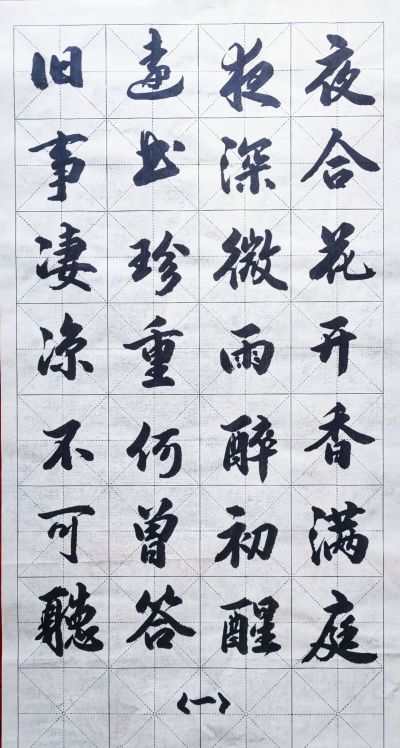 夜合花开香满庭
夜深微雨醉初醒
遠书珍重何曾答
旧事凄凉不可聽
〈一〉